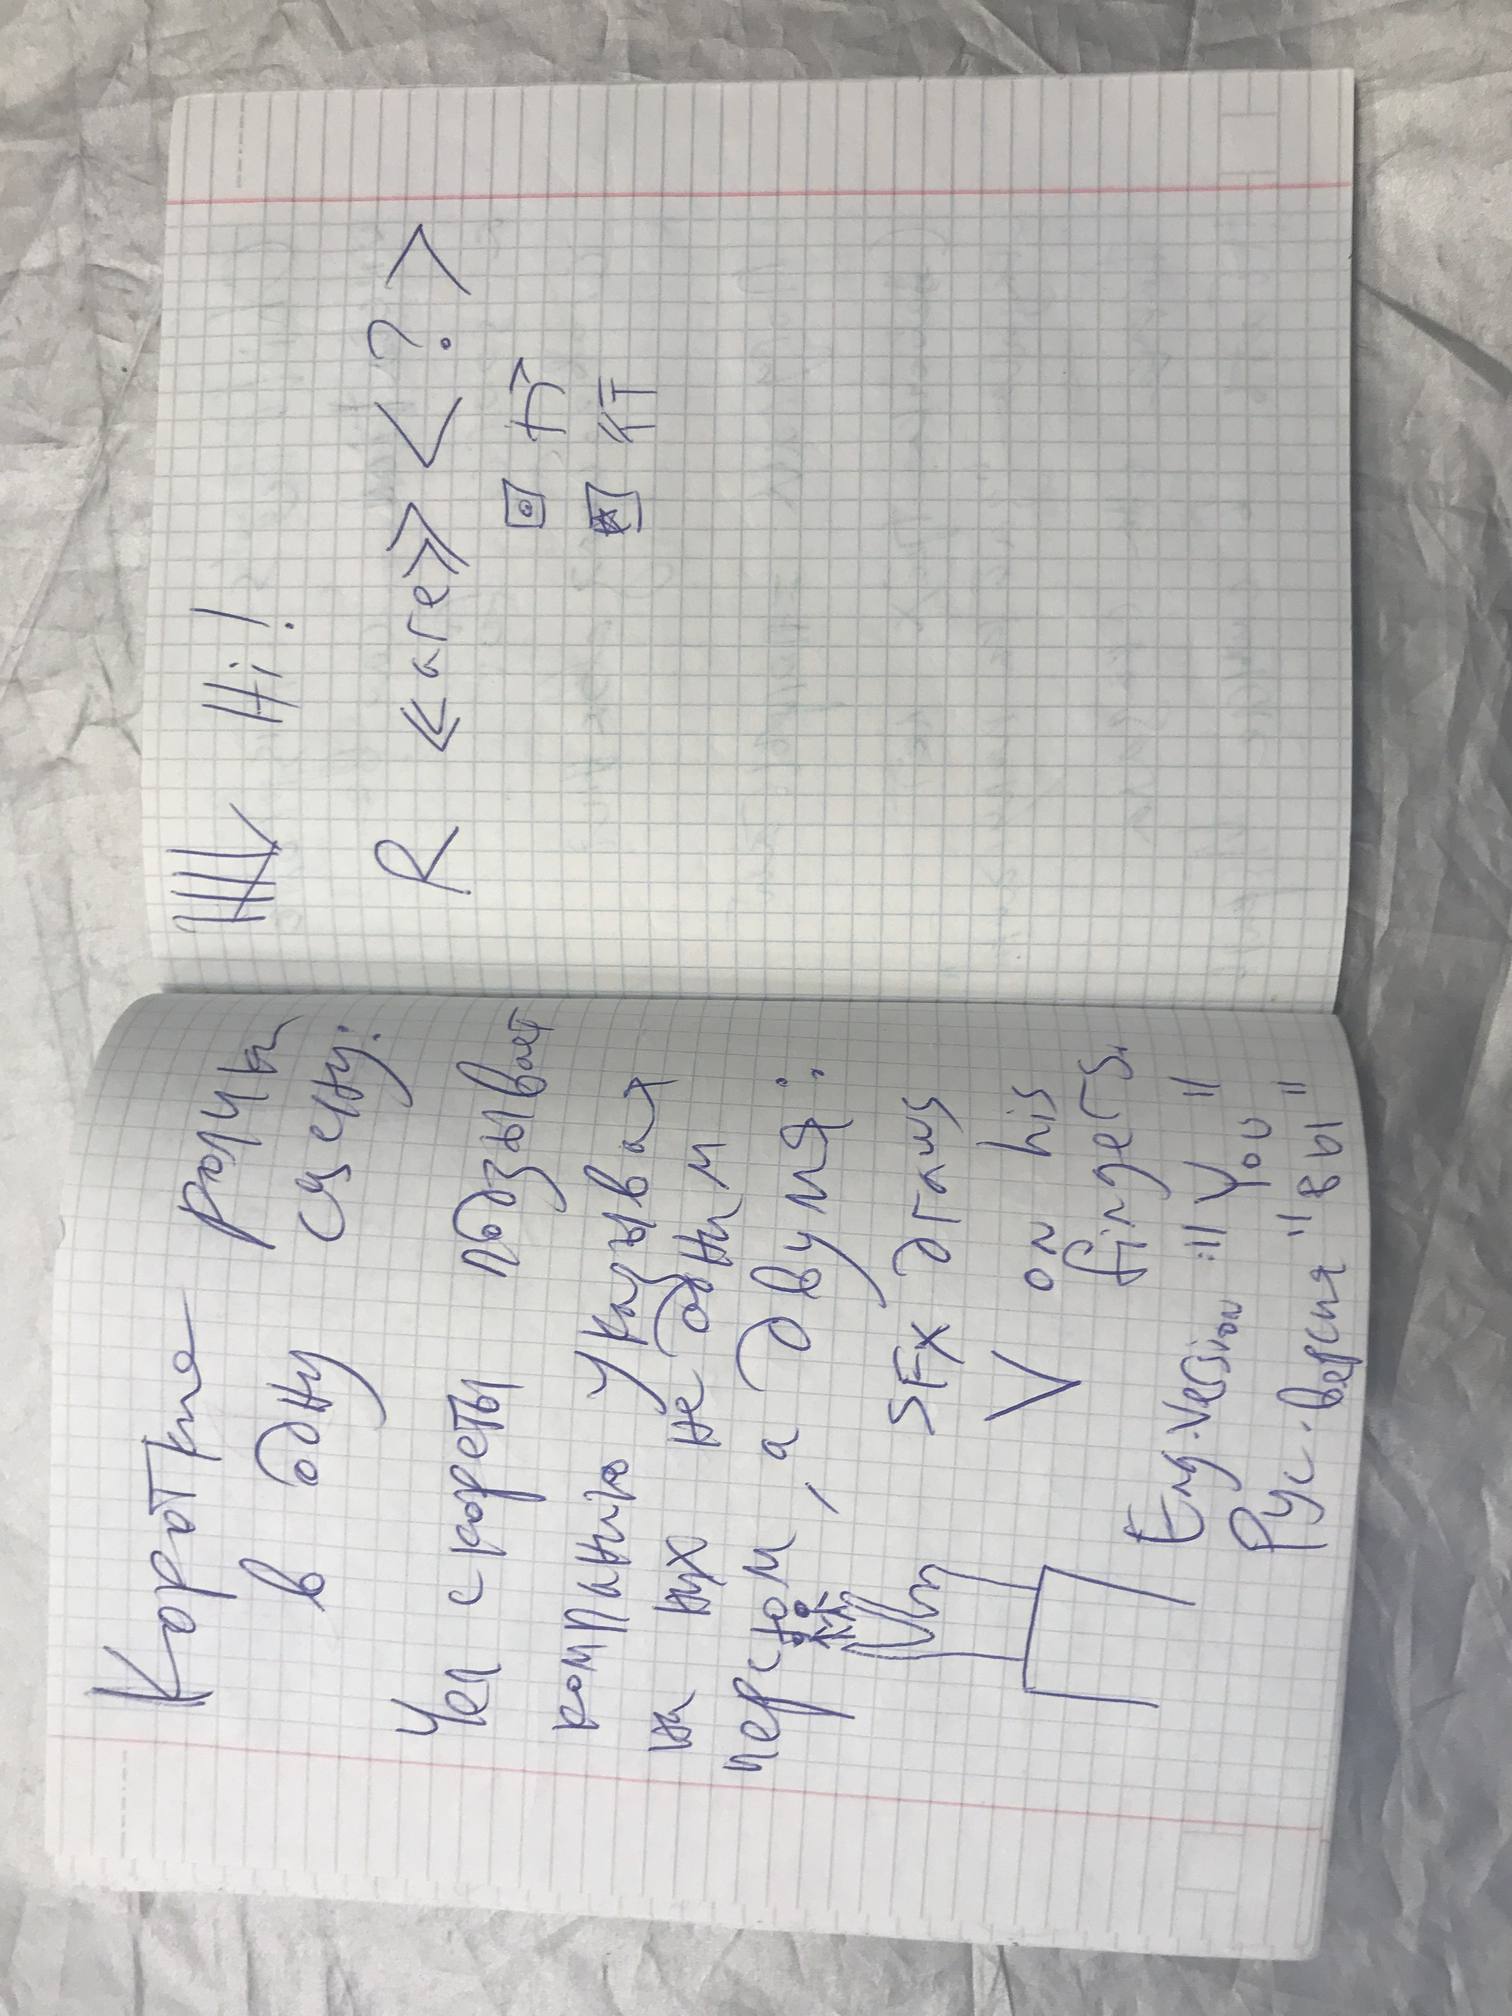 Короткие ролики
в одну сцену:
Чел с кореты подзывает
компанию указывая
на них не одним
перстом, а двумя:
SFX draws
V on his
fingers.
Eng. Version: "You"
Рус. версия "вы"
Hi!
R «are» < ? >